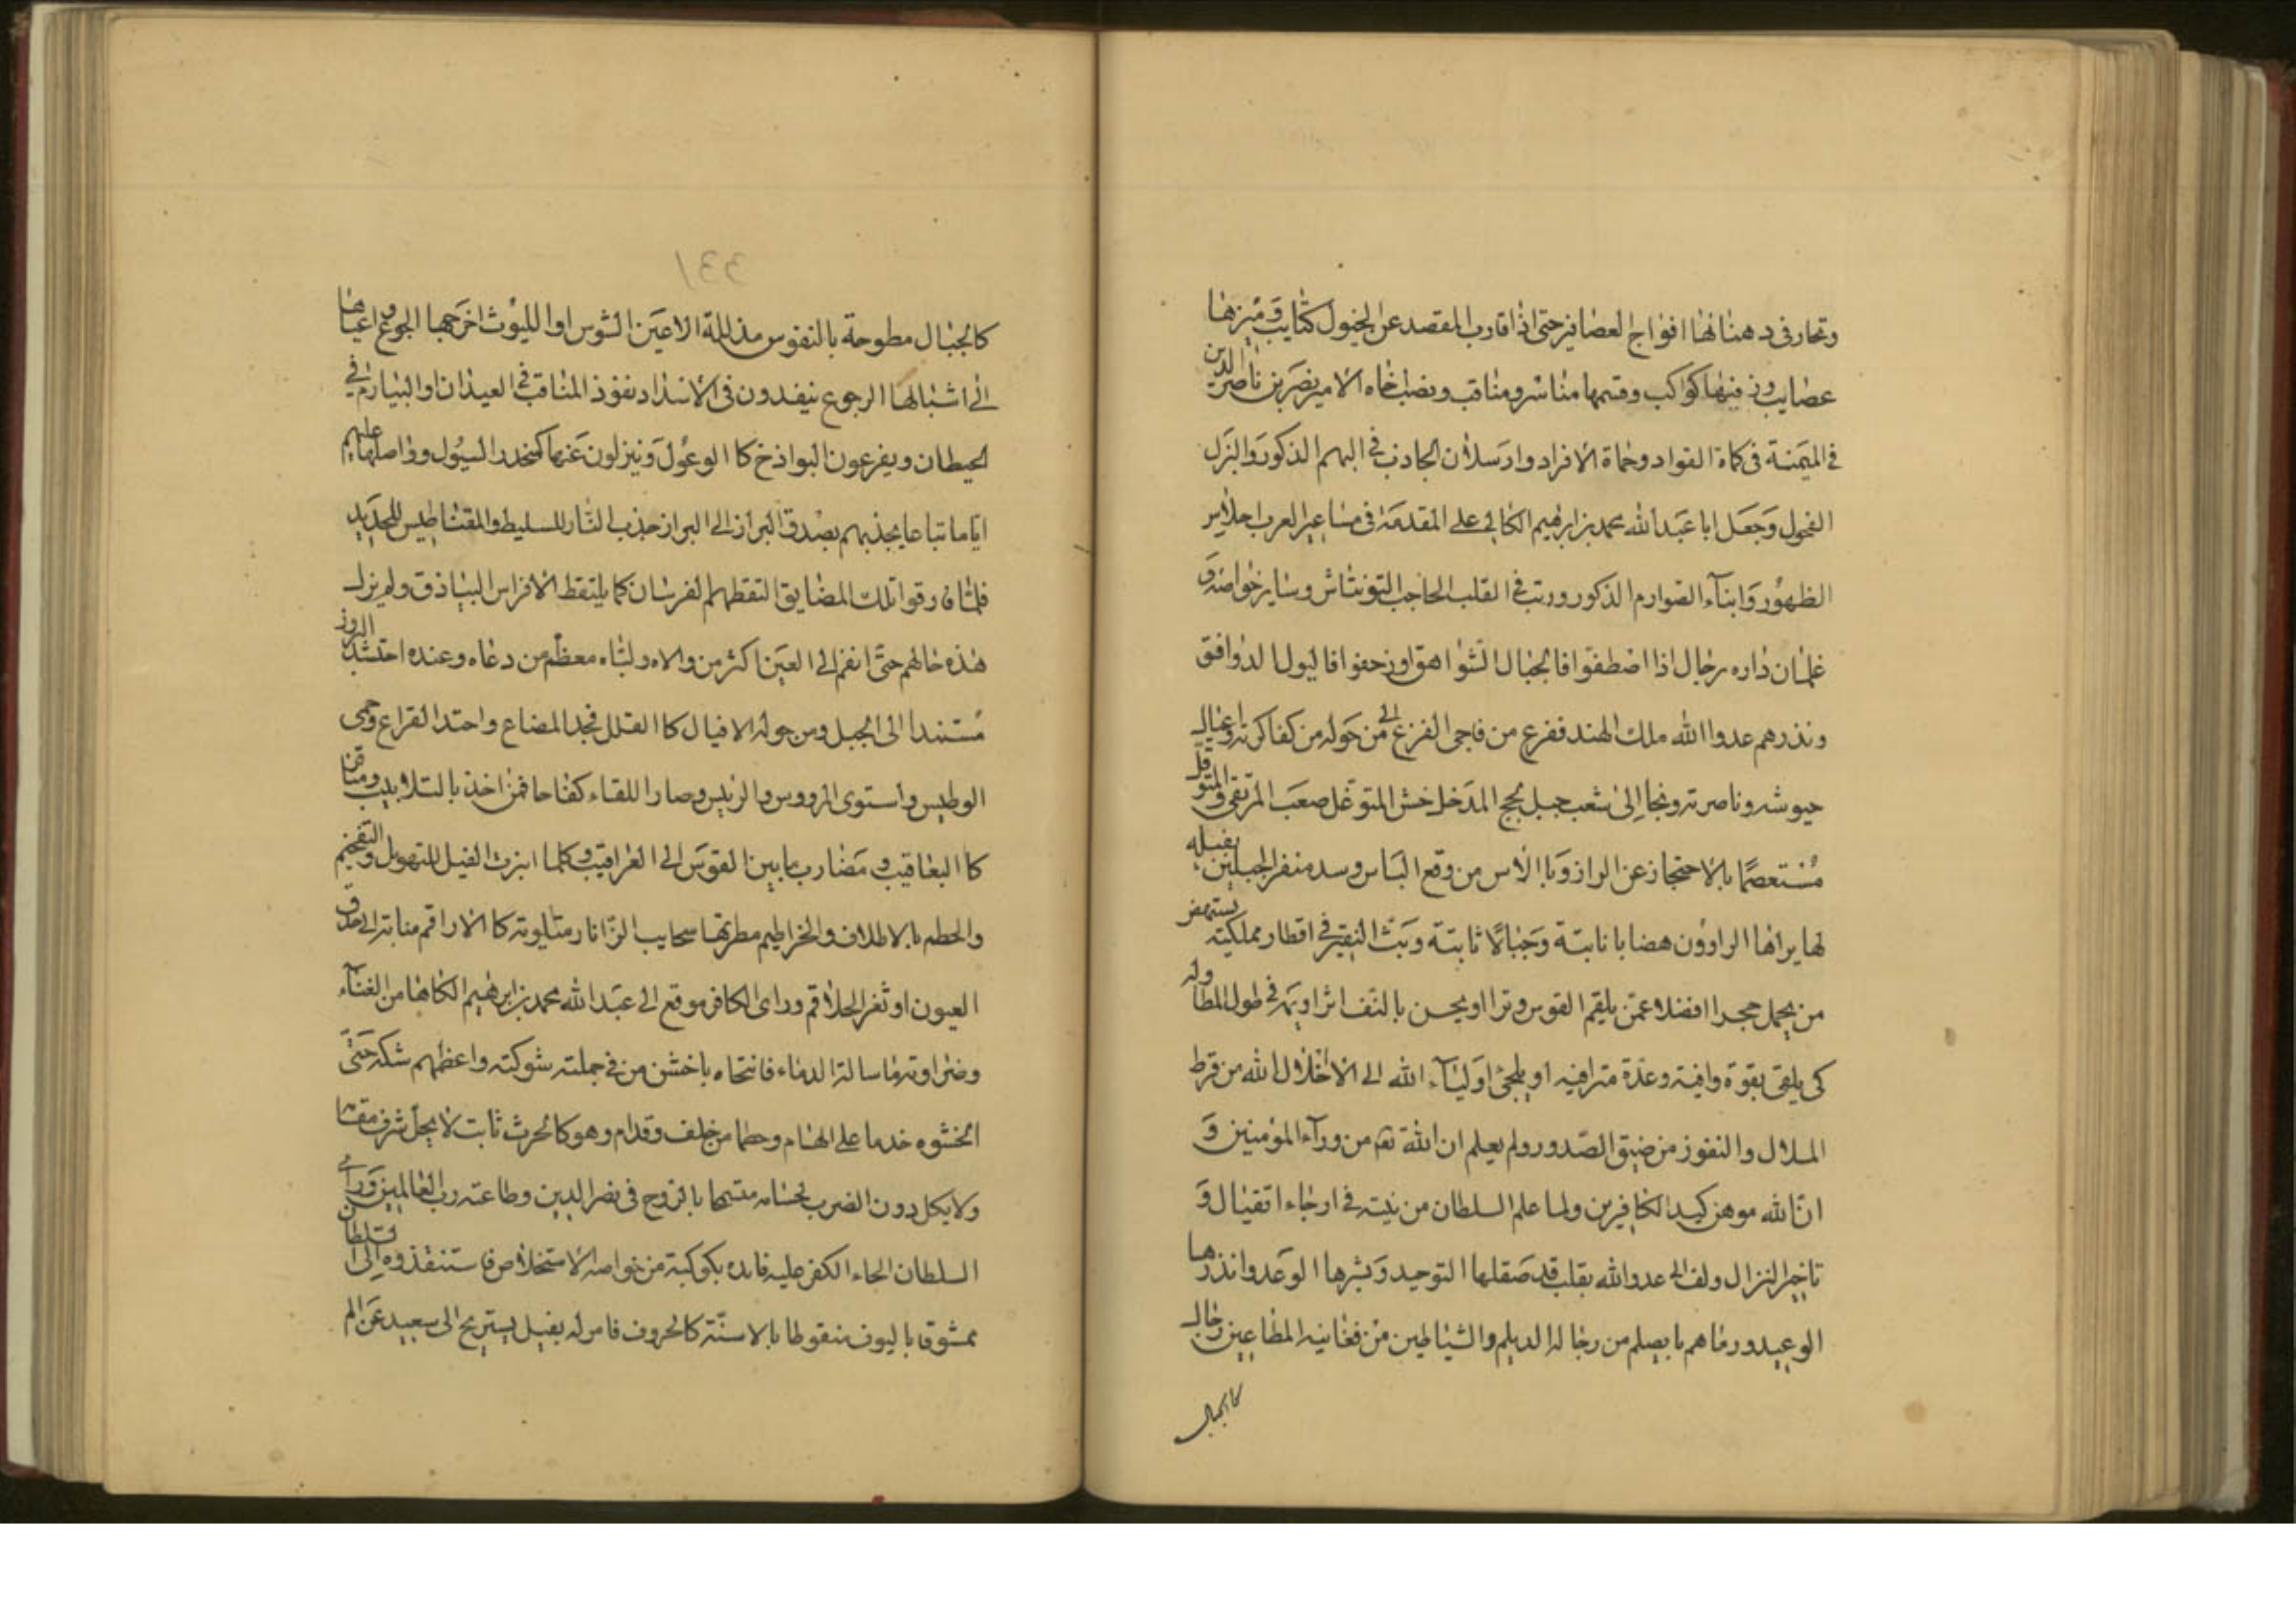 وتحار فى دهنائها افواج العصافير حتى اذا قارب المقصد عن الخيول كتايب وميزها
عصايب وزفيها كواكب وقسمها مناسر ومناقب ونصب اخاه الامير نصر بن ناصر الدين
فى الميمنة فى كماة القواد وحماة الافراد وارسلان الجاذب فى البهم الذكور والبزل
الفحول وجعل ابا عبدالله محمد بن ابرهيم الطائى على المقدمة فى مساعير العرب احلاس
الظهور وابناء الصوارم الذكور ورتب فى القلب الحاجب التونتاش وساير خواصه و
غلمان داره رجال اذا اصطفوا فالجبال الشواهق او زحفوا فاليول الدوافق
ونذرهم عدوا الله ملك الهند ففزع من فاجى الفزع الى من حوله من كفاكرته واعيال
جيوشه وناصرته ونجا الى شعب جبل لحج المدخل خشن المتوغل صعب المرتقى والمتوقل
مستعصما بالاحتجاز عن البراز وبالاس من وقع الباس وسد منفرج الجبلين بفيله
لها يراها الراؤون هضابا نابتة وجبالا ثابتة وبث النفير فى اقطار مملكته يستنهض
من يحمل حجرا فضلا عمن يلقم القوس وترا او يحسن بالثقف اثرا ويمد فى طول المطاوله
كى يلقى بقوة وافية وعدة مترافيه او يلجئ اولياء الله الى الاخلال الله من فرط
الملال والنفور من ضيق الصدور ولم يعلم ان الله تعه من وراء المؤمنين و
ان الله موهن كيد الكافرين ولما علم السلطان من نيته فى ارجاء القتال و
تاخير النزال دلف الى عدو الله بقلب قد صقلها التوحيد وبشرها الوعد وانذرها
الوعيد ورماهم بايصلم من رجاله الديلم والشياطين من فغانيه المطاعين رجال
كالجبال
١٣٣
كالجبال مطوحة بالنفوس مذللة الاعين الشوس او الليوث اخرجها الجوع اعياها
الى اشبالها الرجوع ينفدون فى الاسداد نفوذ المثاقب فى العيدان او البيارم فى
الحيطان ويفرعون البواذخ كا الوعول وينزلون عنها كمنحدر السيول وواصلها عليهم
اياما تباعا يجذبهم بصدق البراز الى البراز جذب النار للسليط والمقناطيس للحديد
فلما فارقوا تلك المضايق التقطهم الفرسان كما يلتقط الافراس البياذق ولم يزل
هذه حالهم حتى انضم الى العين اكثر من والاه ولباه معظم من دعاه وعنده احتشد البروز
مستندا الى الجبل ومن حوله الافيال كا القلل فجد المصاع واحتد القراع وحمى
الوطيس واستوى المرووس والرئيس وصار اللقاء كفاحا فمن اخذ بالتلابيب ومناقر
كا اليعاقيب ومضارب ما بين القوس الى العراقيب وكلما ابرزت الفيل للتهويل والتفخيم
والحطم بالاظلاف والخراطيم مطرتها سحايب الزانار متلويته كا الاراقم منابتة الى حدق
العيون او ثغر الحلاقم وراى الكافر موقع الى عبدالله محمد بن ابرهيم الطائى من الغناء
وضراوته باسالة الدماء فانتحاه باخشن من فى جملته شوكته واعظمهم شكه حتى
اثخنوه خدما على الهام وحطما من خلف وقدام وهو كالحرث ثابت لا يخل شرف مقاما
ولا يكل دون الضرب حسامه متسمحا بالروح فى نصر الدين وطاعته رب العالمين وراى
السلطان الجاء الكفر عليه فامده بكوكبة من خواصه لاستخلاصه فاستنقذوه الى السلطان
ممشوقا باليوف منقوطا بالاسنة كالحروف فامر له بفيل يستريح الى سعيد عن الم